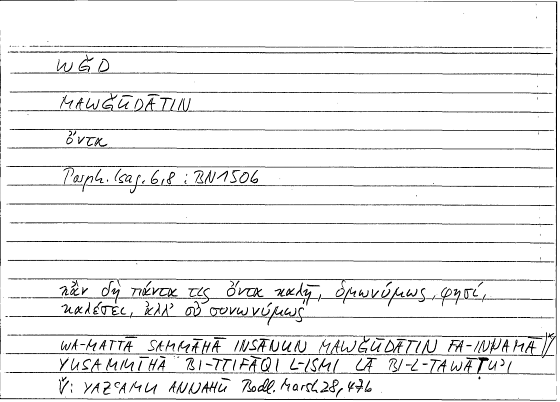 WǦD
MAWǦŪDĀTIN
ὄντα
Porph. Isag. 6,8 : BN 1506
κἂν δὴ πάντα τις ὄντα καλῇ, ὁμωνύμως, φησί,
καλέσει, ἀλλ' οὐ συνωνύμως
WA-MATTĀ SAMMĀHĀ INSĀNUN MAWǦŪDĀTIN FA-INNAMĀ
YUSAMMĪHĀ BI-TTIFĀQI L-ISMI LĀ BI-L-TAWĀṬUʾI
V: YAZʿAMU ANNAHŪ Bodl. Marsh 28, 47b